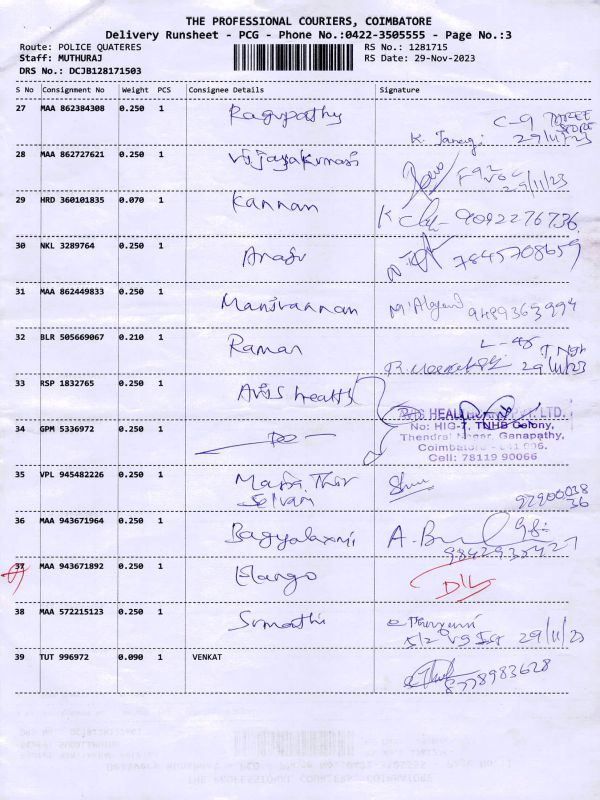 THE PROFESSIONAL COURIERS, COIMBATORE
Delivery Runsheet - PCG - Phone No.:0422-3505555 - Page No.:3
Route: POLICE QUATERES RS No.: 1281715
Staff: MUTHURAJ RS Date: 29-Nov-2023
DRS No.: DCJB128171503
S No Consignment No Weight PCS Consignee Details Signature
27 MAA 862384308 0.250 1 Ragupathy C-9
29/11/23
28 MAA 862727621 0.250 1 Vijayakumar
29/11/23
29 HRD 360101835 0.070 1 Kannan 9092276736
30 NKL 3289764 0.250 1 7845708659
31 MAA 862449833 0.250 1 Manivannan 9489363994
32 BLR 505669067 0.210 1 Raman
29/11/23
33 RSP 1832765 0.250 1
HEAL LTD.
No: HIG-7, TNHB Colony,
34 GPM 5336972 0.250 1 Do
Ganapathy,
Cell: 78119 90066
35 VPL 945482226 0.250 1
Selvam
36 MAA 943671964 0.250 1 Bagyalaxmi
37 MAA 943671892 0.250 1 Elango
38 MAA 572215123 0.250 1 Sumathi
29/11/23
39 TUT 996972 0.090 1 VENKAT
8778983628